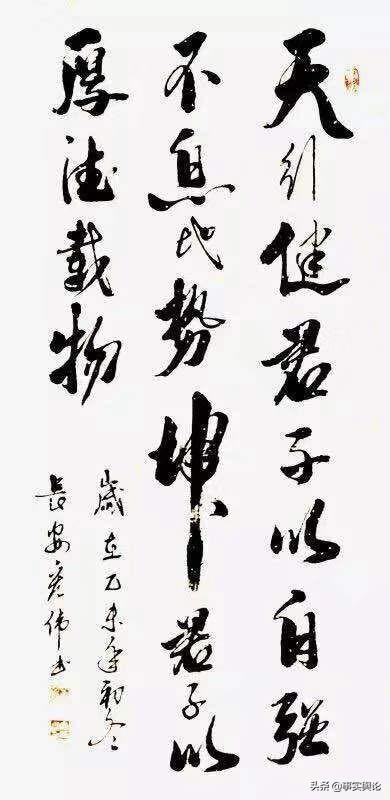 天行健君子以自强
不息地勢坤君子以
厚德載物
歲在乙未年初冬
長安偉书
头条 @事实舆论